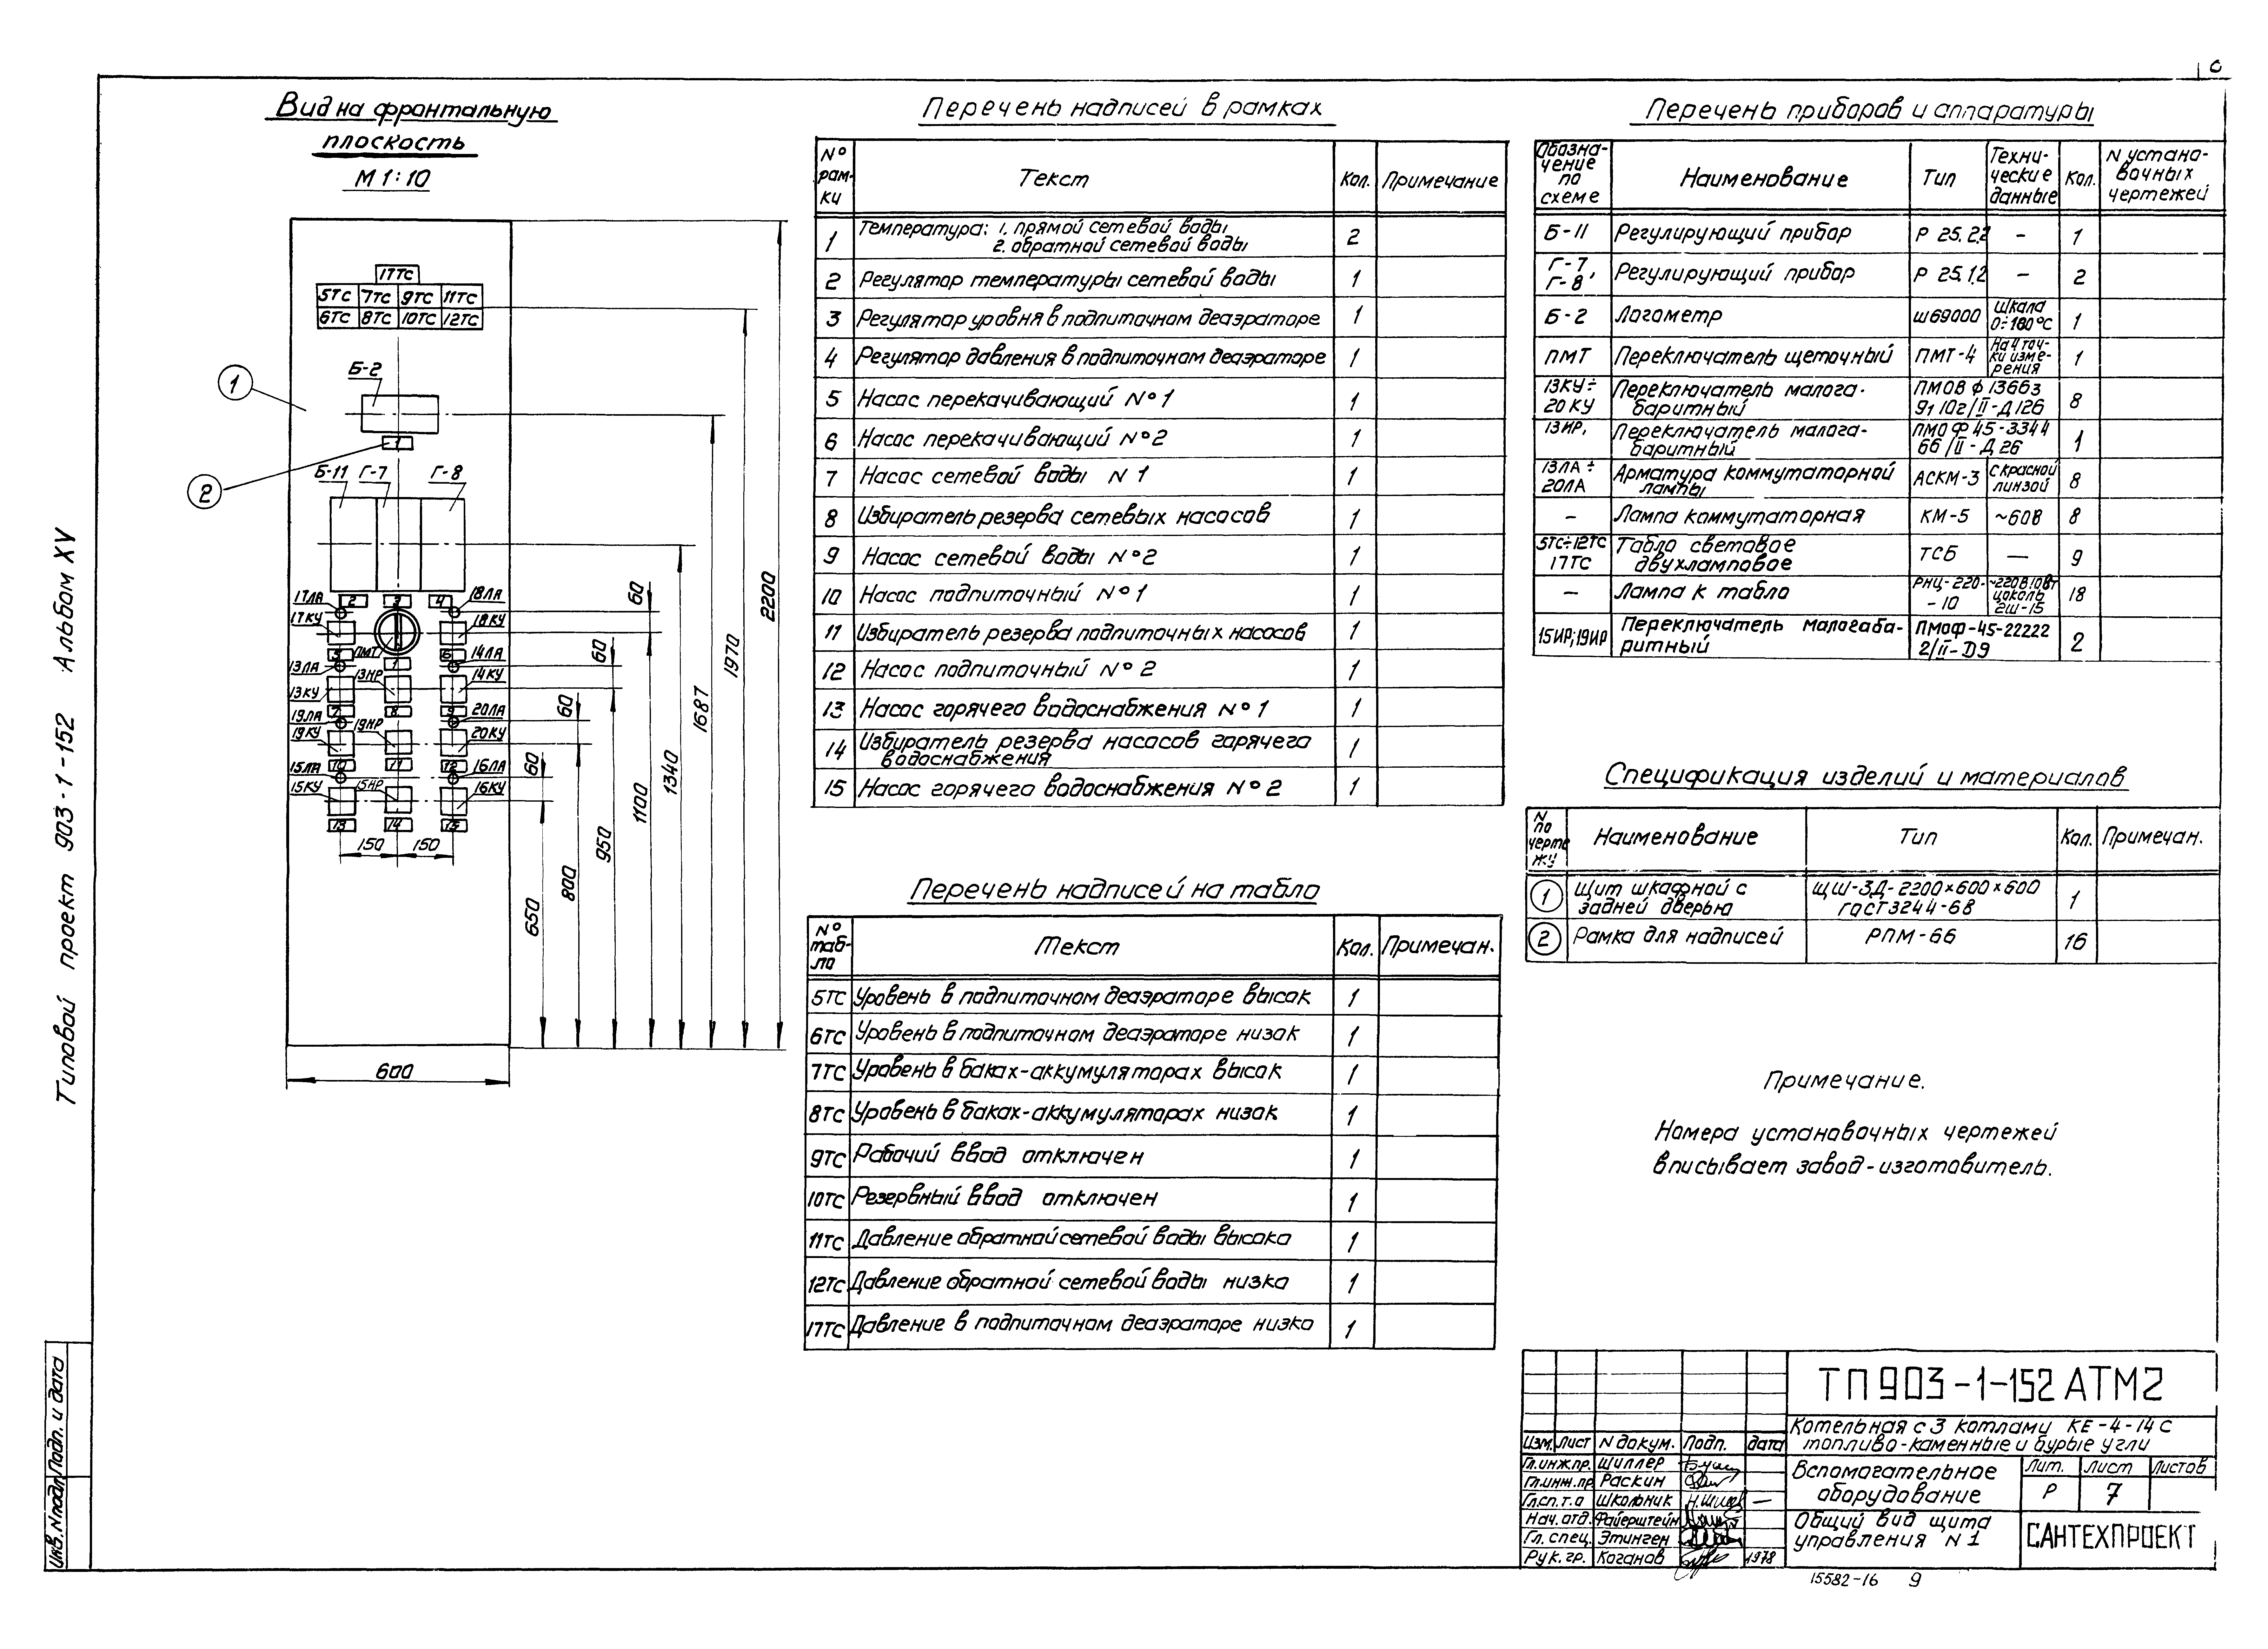 Вид на фронтальную
плоскость
М 1:10
17ТС
5ТС 7ТС 9ТС 11ТС
6ТС 8ТС 10ТС 12ТС
Б-2
1
1
2
Б-11 Г-7 Г-8
17ЛА 2 3 4 18ЛА
17КУ 18КУ
5 ПМТ 6
13ЛА 1 14ЛА
13КУ 13ИР 14КУ
7 8 9
19ЛА 20ЛА
19КУ 19ИР 20КУ
10 11 12
15ЛА 16ЛА
15КУ 15ИР 16КУ
13 14 15
150 150
600
60
60
60
60
650
800
950
1100
1340
1687
1970
2200
Перечень надписей в рамках
№ рам-ки Текст Кол. Примечание
1 Температура: 1. прямой сетевой воды
2. обратной сетевой воды 2
2 Регулятор температуры сетевой воды 1
3 Регулятор уровня в подпиточном деаэраторе 1
4 Регулятор давления в подпиточном деаэраторе 1
5 Насос перекачивающий №1 1
6 Насос перекачивающий №2 1
7 Насос сетевой воды N 1 1
8 Избиратель резерва сетевых насосов 1
9 Насос сетевой воды №2 1
10 Насос подпиточный №1 1
11 Избиратель резерва подпиточных насосов 1
12 Насос подпиточный №2 1
13 Насос горячего водоснабжения №1 1
14 Избиратель резерва насосов горячего
водоснабжения 1
15 Насос горячего водоснабжения №2 1
Перечень надписей на табло
№ таб-ло Текст Кол. Примечан.
5ТС Уровень в подпиточном деаэраторе высок 1
6ТС Уровень в подпиточном деаэраторе низок 1
7ТС Уровень в баках-аккумуляторах высок 1
8ТС Уровень в баках-аккумуляторах низок 1
9ТС Рабочий ввод отключен 1
10ТС Резервный ввод отключен 1
11ТС Давление обратной сетевой воды высоко 1
12ТС Давление обратной сетевой воды низко 1
17ТС Давление в подпиточном деаэраторе низко 1
Перечень приборов и аппаратуры
Обозна-чение по схеме Наименование Тип Техни-ческие данные Кол. N устано-вочных чертежей
Б-11 Регулирующий прибор Р 25.2.2 - 1
Г-7, Г-8 Регулирующий прибор Р 25.1.2 - 2
Б-2 Логометр Ш69000 Шкала 0÷180°С 1
ПМТ Переключатель щеточный ПМТ-4 На 4 точ-ки изме-рения 1
13КУ÷ Переключатель малога- ПМОВ ф 13663
20КУ баритный 91 10г/II-Д126 8
13ИР, Переключатель малога- ПМОФ 45-3344
баритный 66/II-Д26 1
13ЛА÷ Арматура коммутаторной АСКМ-3 с красной
20ЛА лампы линзой 8
- Лампа коммутаторная КМ-5 ~60В 8
5ТС÷12ТС Табло световое ТСБ — 9
17ТС двухламповое
- Лампа к табло РНЦ-220-10 ~220В 10Вт цоколь 2Ш-15 18
15ИР; 19ИР Переключатель малогаба- ПМОФ-45-22222
ритный 2/II-D9 2
Спецификация изделий и материалов
N по черте жу Наименование Тип Кол. Примечан.
1 Щит шкафной с ЩШ-ЗД-2200×600×600
задней дверью ГОСТ 3244-68 1
2 Рамка для надписей РПМ-66 16
Примечание.
Номера установочных чертежей
вписывает завод-изготовитель.
ТП 903-1-152 АТМ2
Котельная с 3 котлами КЕ-4-14С
топливо-каменные и бурые угли
Изм. Лист N докум. Подп. дата
Гл.инж.пр. Шиллер
Гл.инж.пр. Раскин
Гл.сп.т.о Школьник
Нач. отд. Файерштейн
Гл. спец. Этинген
Рук. гр. Коганов 1978
Вспомогательное
оборудование
Лит. Лист Листов
Р 7
Общий вид щита
управления N 1
САНТЕХПРОЕКТ
15582-16 9
Типовой проект 903-1-152 Альбом XV
Инв. N подл. Подп. и дата